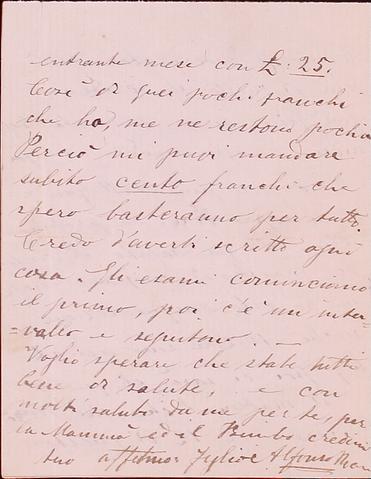 entrante mese con £. 25.
Così di quei pochi franchi
che ho, me ne restono pochi
Perciò mi puoi mandare
subito cento franchi che
spero basteranno per tutto.
Credo d'averti scritto ogni
cosa. Gli esami cominciono
il primo, poi c'è un inter=
=vallo e seguitono. —
Voglio sperare che state tutti
bene di salute, e con
molti saluti da me per te, per
la Mamma ed il Bimbo credimi
tuo affmo Figlio Alfonso